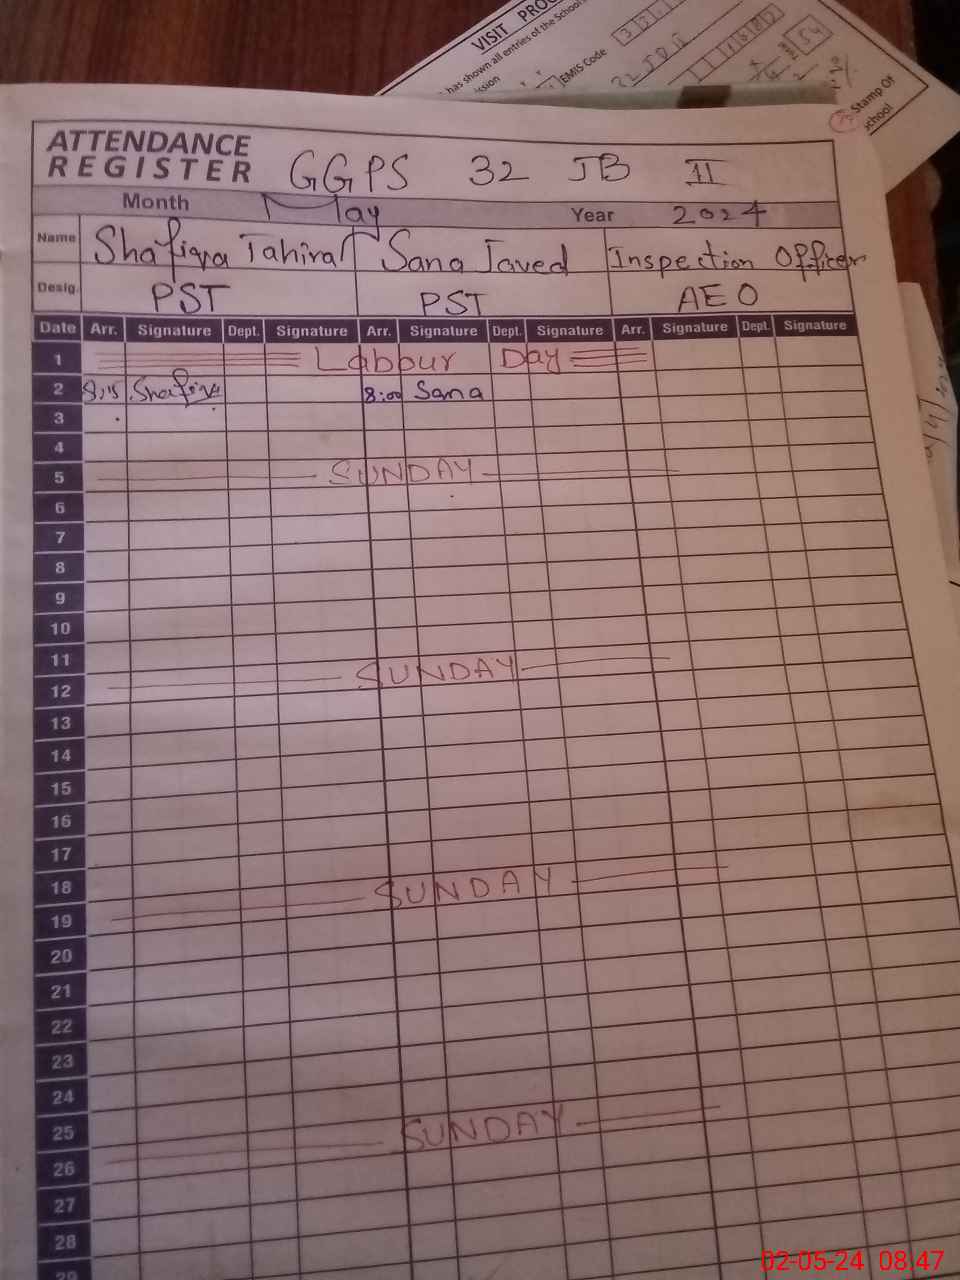 VISIT PROG
has shown all entries of the School
ssion
EMIS Code
32 JB II
54
Stamp Of
School
ATTENDANCE
REGISTER
GGPS 32 JB II
Month May Year 2024
Name Shafiqa Tahira Sana Javed Inspection Officer
Desig. PST PST AEO
Date Arr. Signature Dept. Signature Arr. Signature Dept. Signature Arr. Signature Dept. Signature
1 Labour Day
2 8:15 Shafiqa 8:00 Sana
3
4
5 SUNDAY
6
7
8
9
10
11
12 SUNDAY
13
14
15
16
17
18
19 SUNDAY
20
21
22
23
24
25
26 SUNDAY
27
28
29
02-05-24 08:47